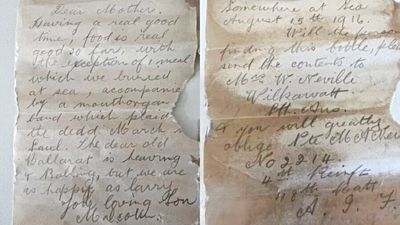 Dear Mother.
Having a real good
time, food is real
good so far, with
the exception of 1 meal
which we buried
at sea, accompanied
by a mouthorgan
band which plaid
the dedd March in
Saul. The dear old
Ballarat is heaving
& Rolling, but we are
as happy as larry.
Your loving Son
Malcolm.
Somewhere at Sea
August 15th 1916.
Will the person
finding this bottle, please
send the contents to
Mrs W. Neville
Wilkawatt
Sth Aus.
& you will greatly
oblige Pte M A
No 2214
4th Reinft
48th Batt
A. I. F.